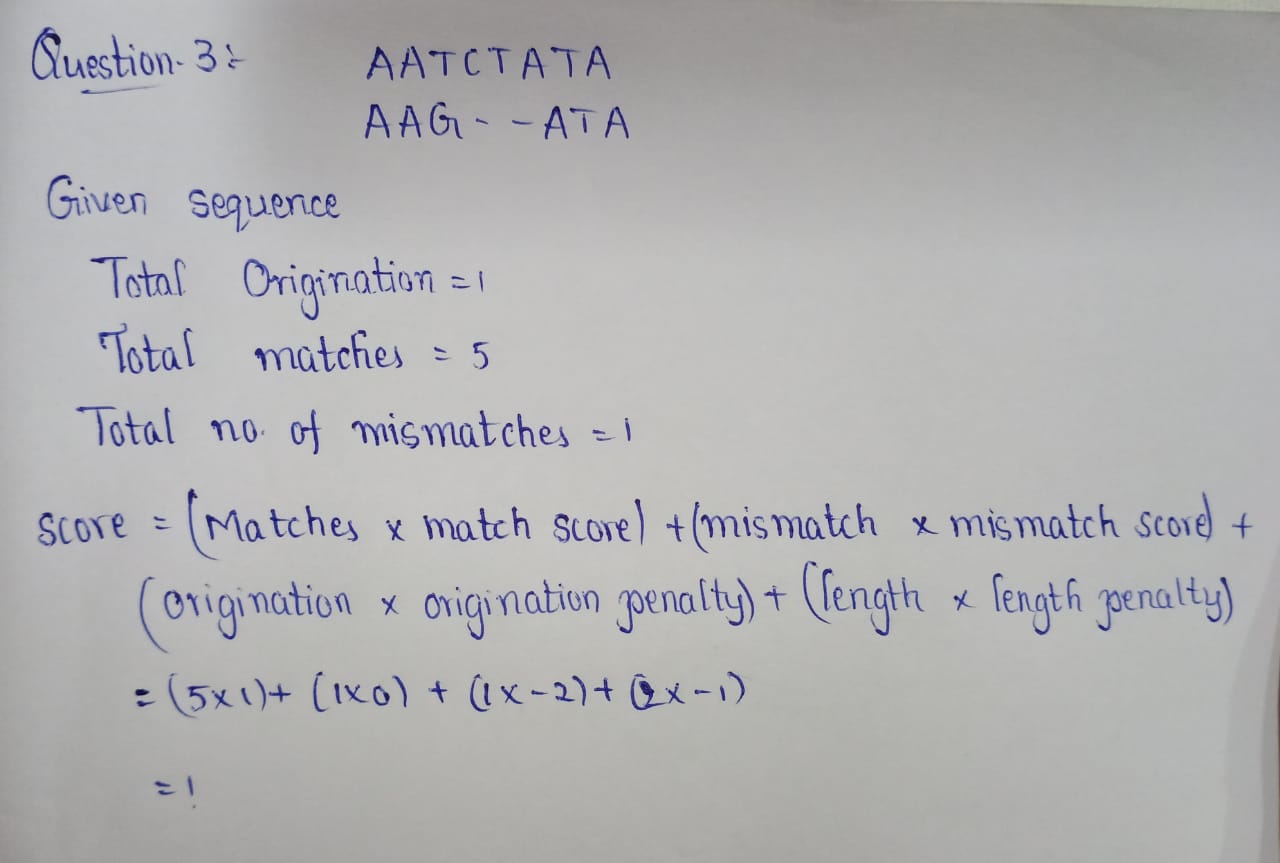 Question-3:- AATCTATA
AAG--ATA
Given sequence
Total Origination = 1
Total matches = 5
Total no. of mismatches = 1
score = (Matches x match score) + (mismatch x mismatch score) +
(origination x origination penalty) + (length x length penalty)
= (5x1)+ (1x0) + (1x-2)+ (2x-1)
= 1